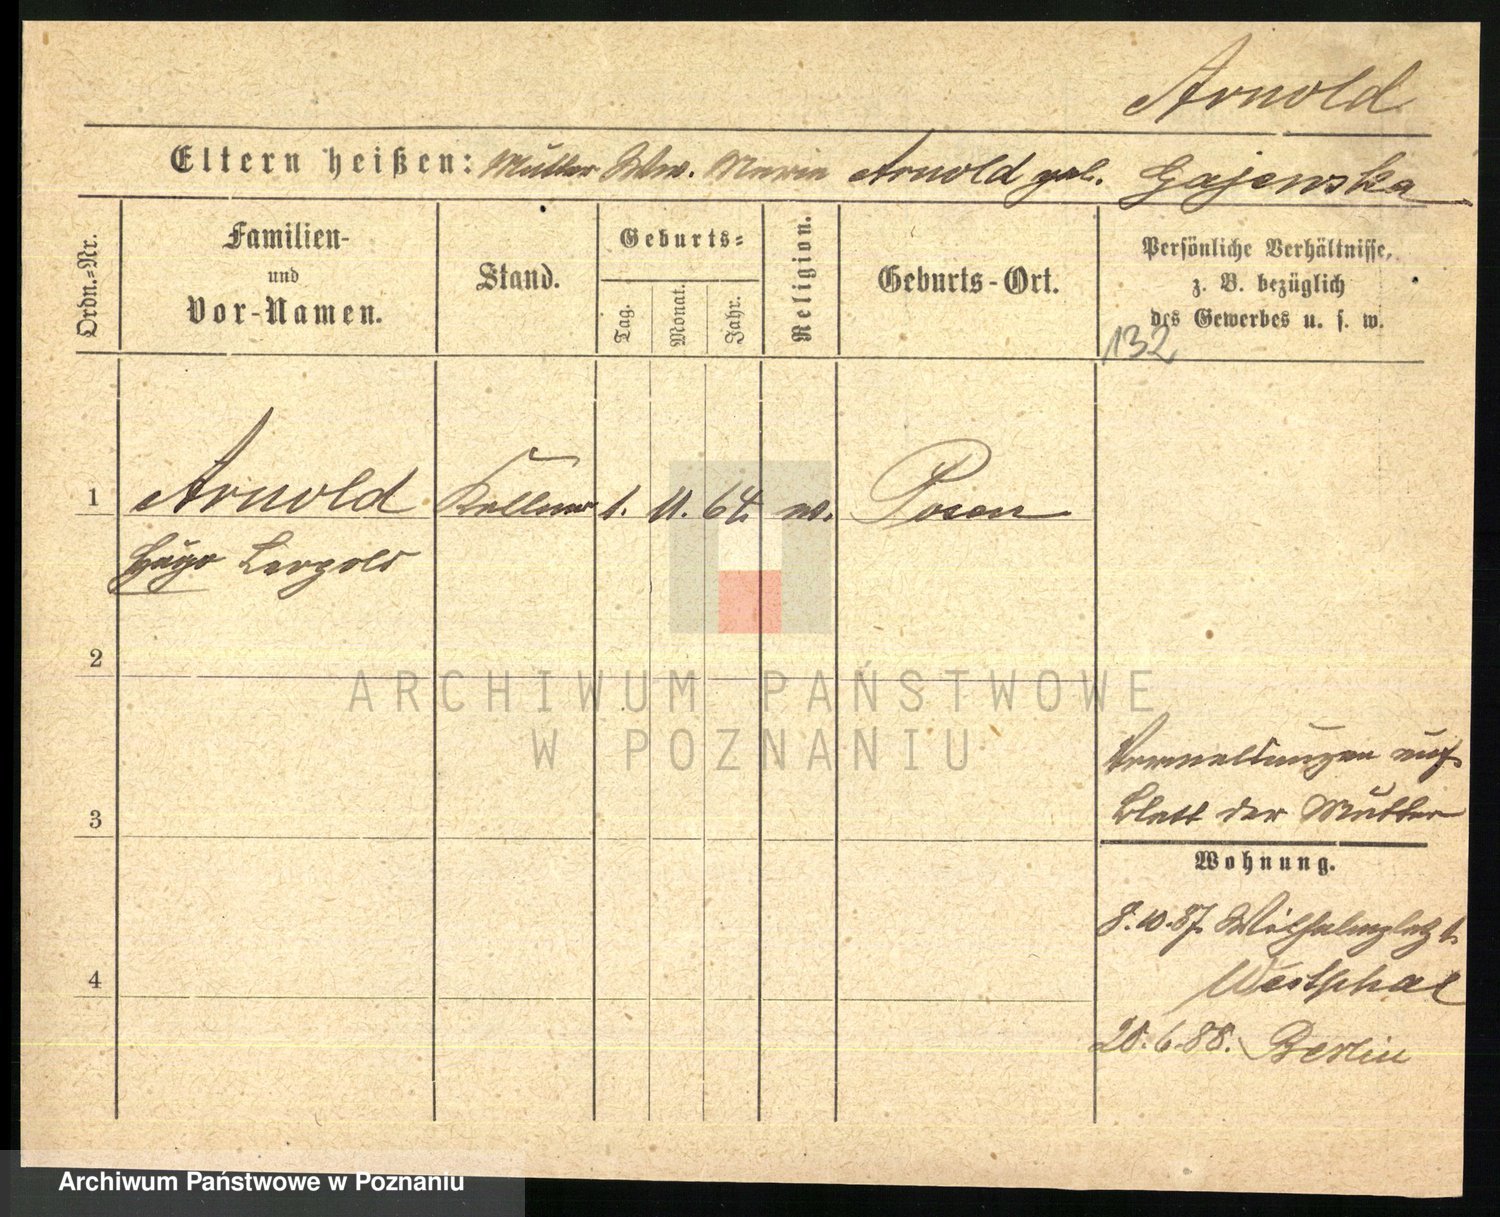 Arnold
Eltern heißen: Mutter Ww. Marie Arnold geb. Gajewska
Ordn.-Nr.
Familien-
und
Vor-Namen.
Stand.
Geburts-
Tag.
Monat.
Jahr.
Religion.
Geburts-Ort.
Persönliche Verhältnisse,
z. B. bezüglich
des Gewerbes u. s. w.
132
1 Arnold Kellner 1. 11. 64. ev. Posen
Hugo Leopold
2
ARCHIWUM PAŃSTWOWE
W POZNANIU
3
Vermeldungen auf
Blatt der Mutter
Wohnung.
8.10.87. Wilhelmplatz 1.
Westphal
4
20.6.88. Berlin
Archiwum Państwowe w Poznaniu